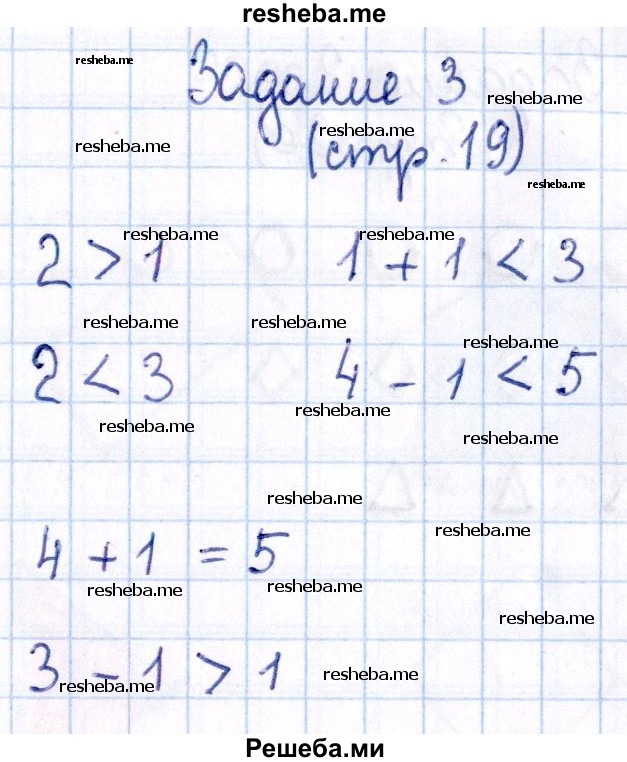 resheba.me
resheba.me
Задание 3
resheba.me
resheba.me
resheba.me
(стр. 19)
resheba.me
resheba.me resheba.me
2 > 1 1 + 1 < 3
resheba.me resheba.me
resheba.me
2 < 3 4 - 1 < 5
resheba.me
resheba.me
resheba.me
resheba.me
resheba.me
4 + 1 = 5
resheba.me
resheba.me
resheba.me
3 - 1 > 1
resheba.me
resheba.me
Решеба.ми